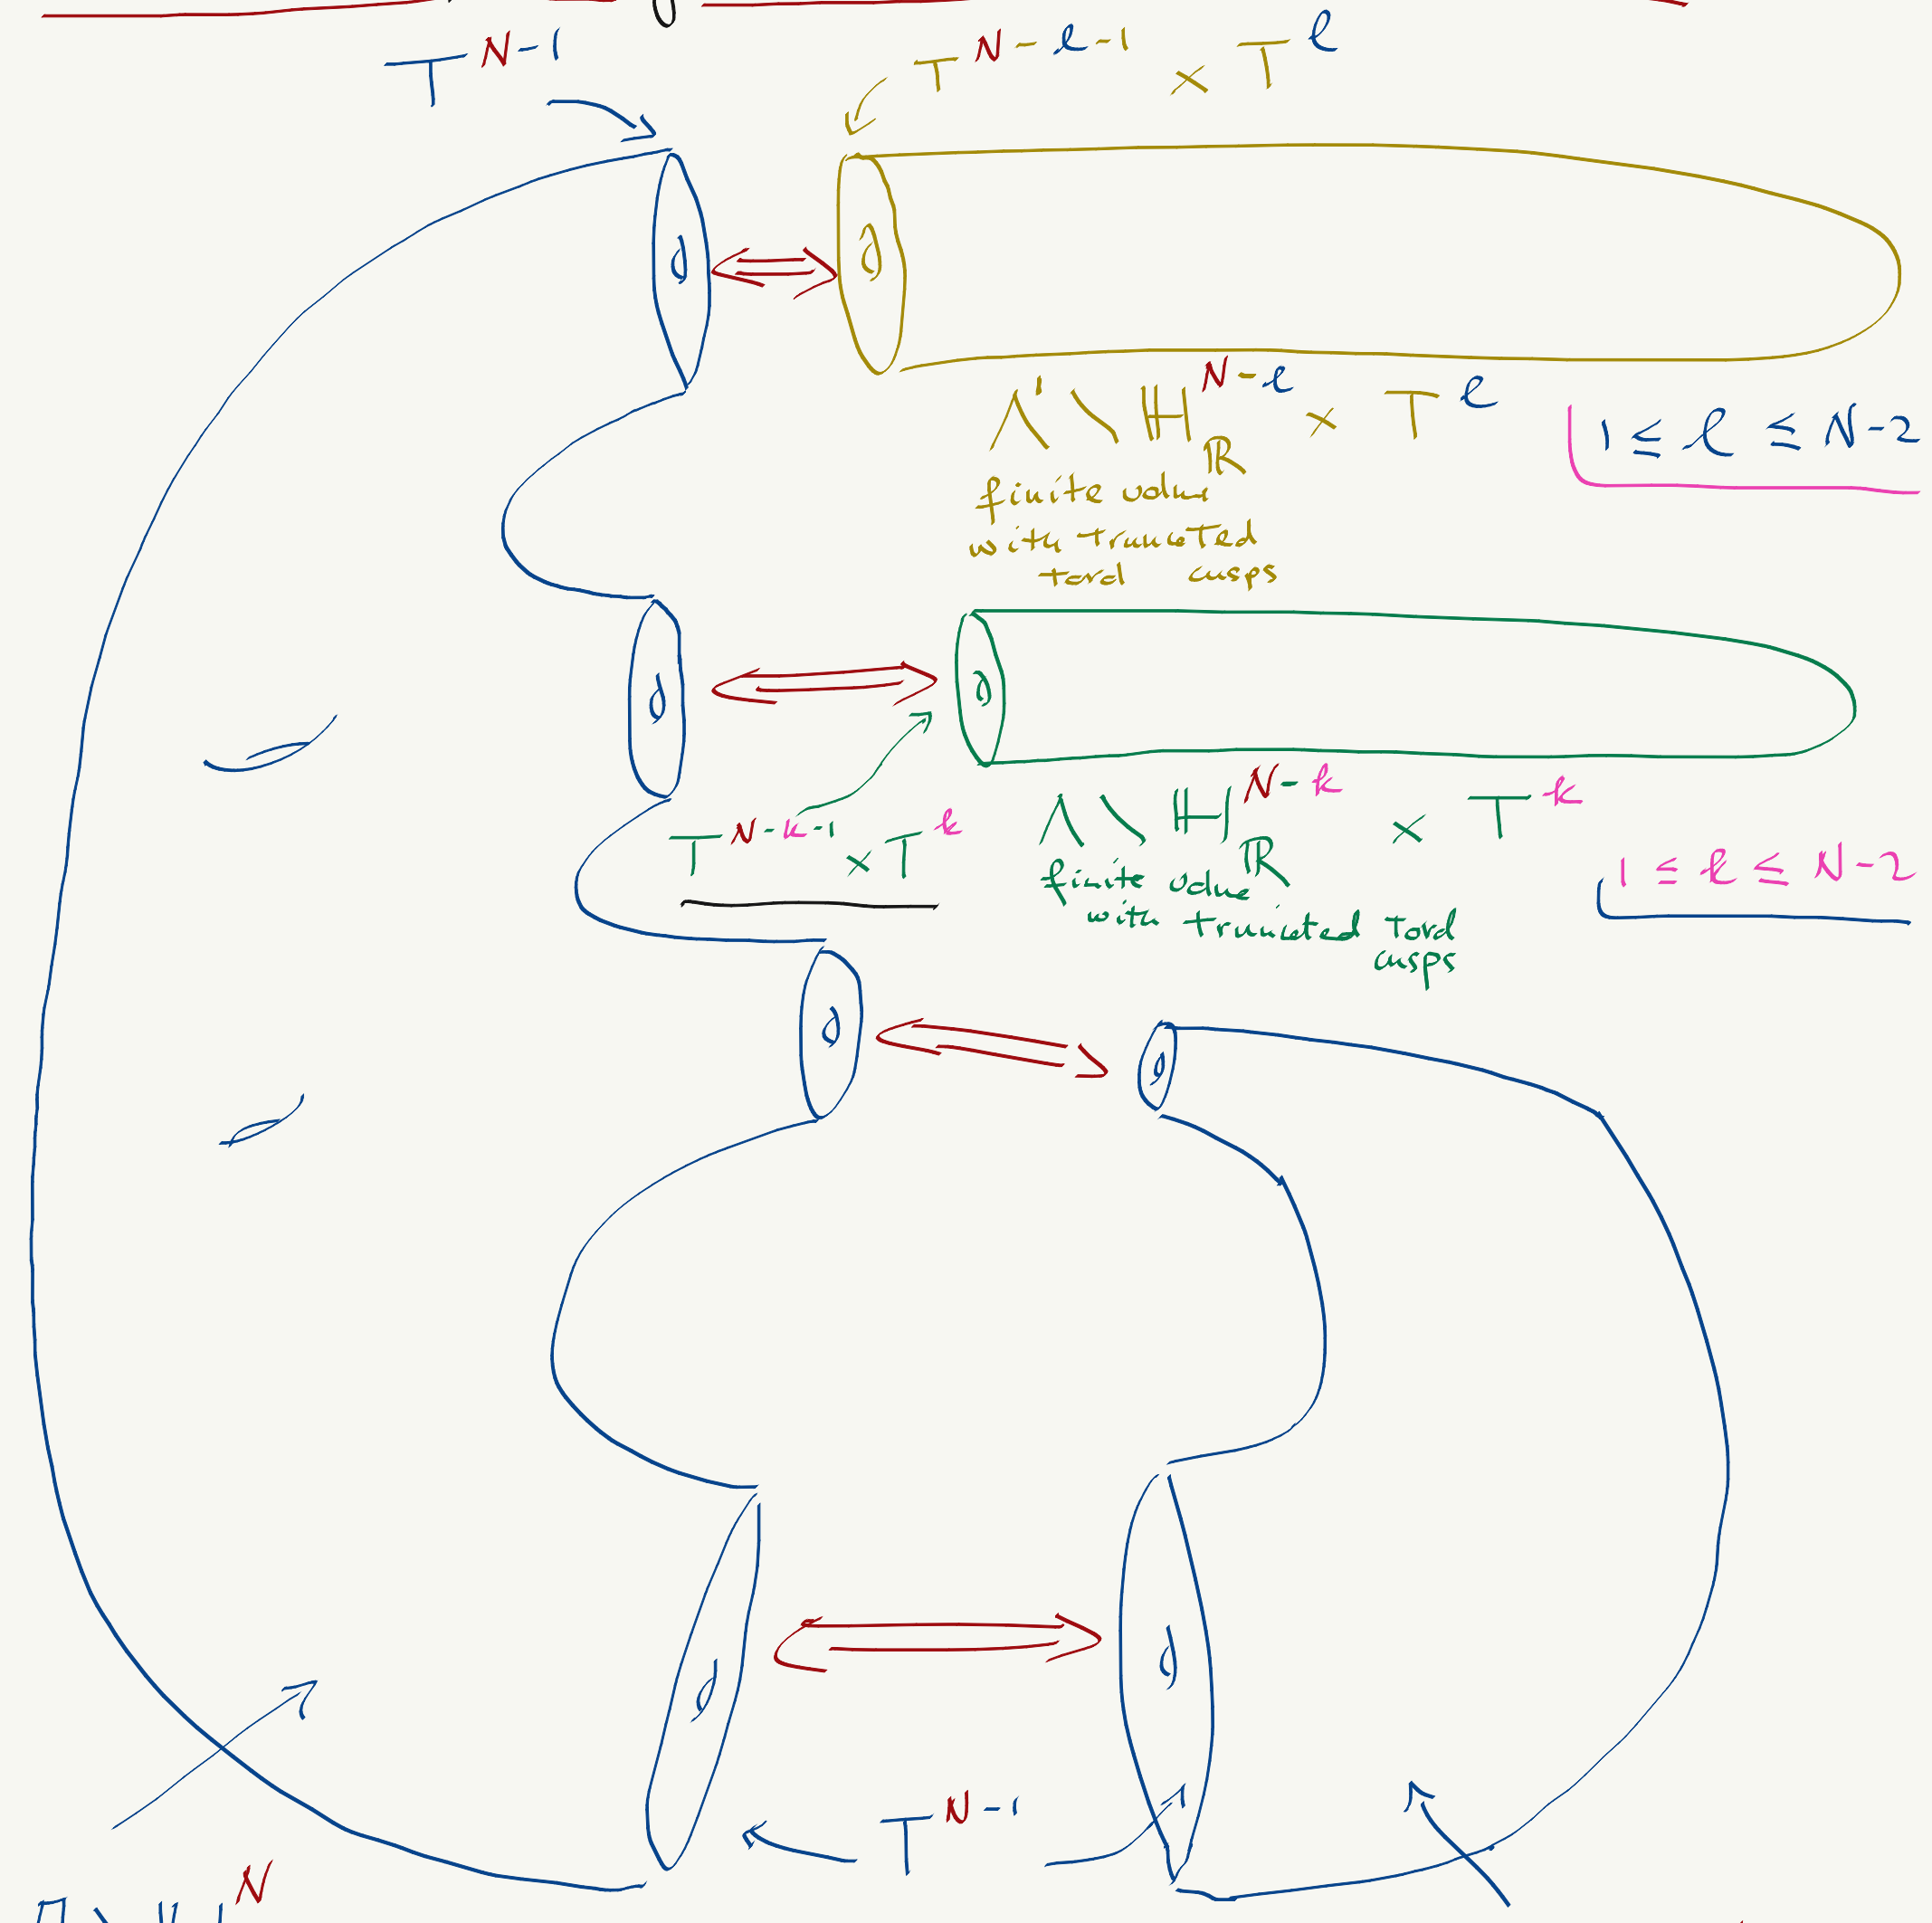 T^{N-1}
T^{N-ℓ-1} × T^ℓ
Λ' \ ℍ_ℝ^{N-ℓ} × T^ℓ
1 ≤ ℓ ≤ N-2
finite volume
with truncated
toral cusps
T^{N-k-1} × T^k
Λ \ ℍ_ℝ^{N-k} × T^k
1 ≤ k ≤ N-2
finite volume
with truncated toral
cusps
T^{N-1}
N